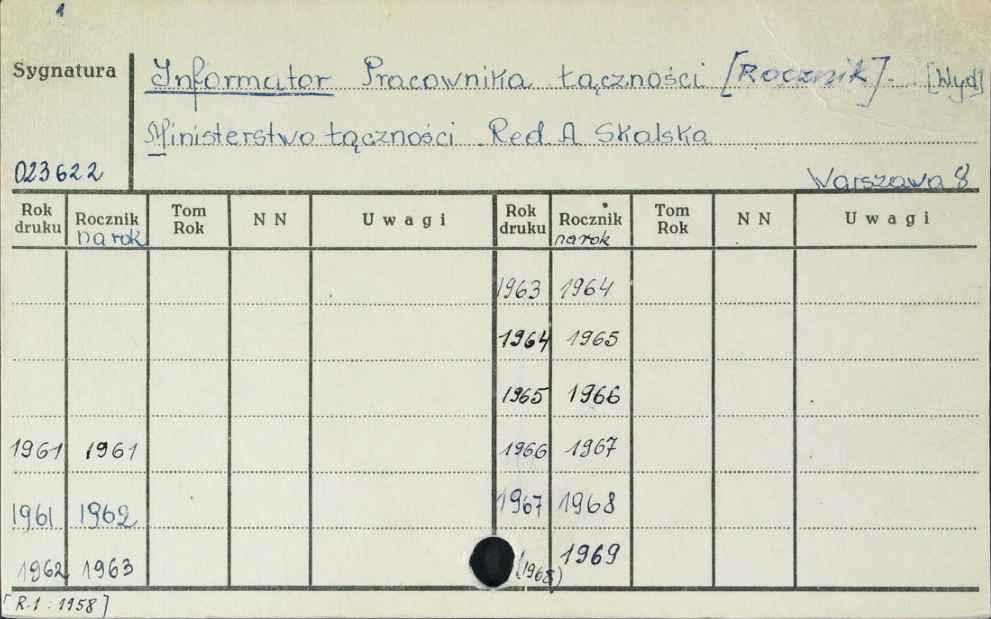 1
Sygnatura Informator Pracownika Łączności [Rocznik]. [Wyd]
Ministerstwo Łączności. Red. A Skalska
023622 Warszawa 8
Rok druku Rocznik na rok Tom Rok N N Uwagi Rok druku Rocznik na rok Tom Rok N N Uwagi
1963 1964
1964 1965
1965 1966
1961 1961 1966 1967
1961 1962 1967 1968
1962 1963 (1968) 1969
[R.1 : 1958]